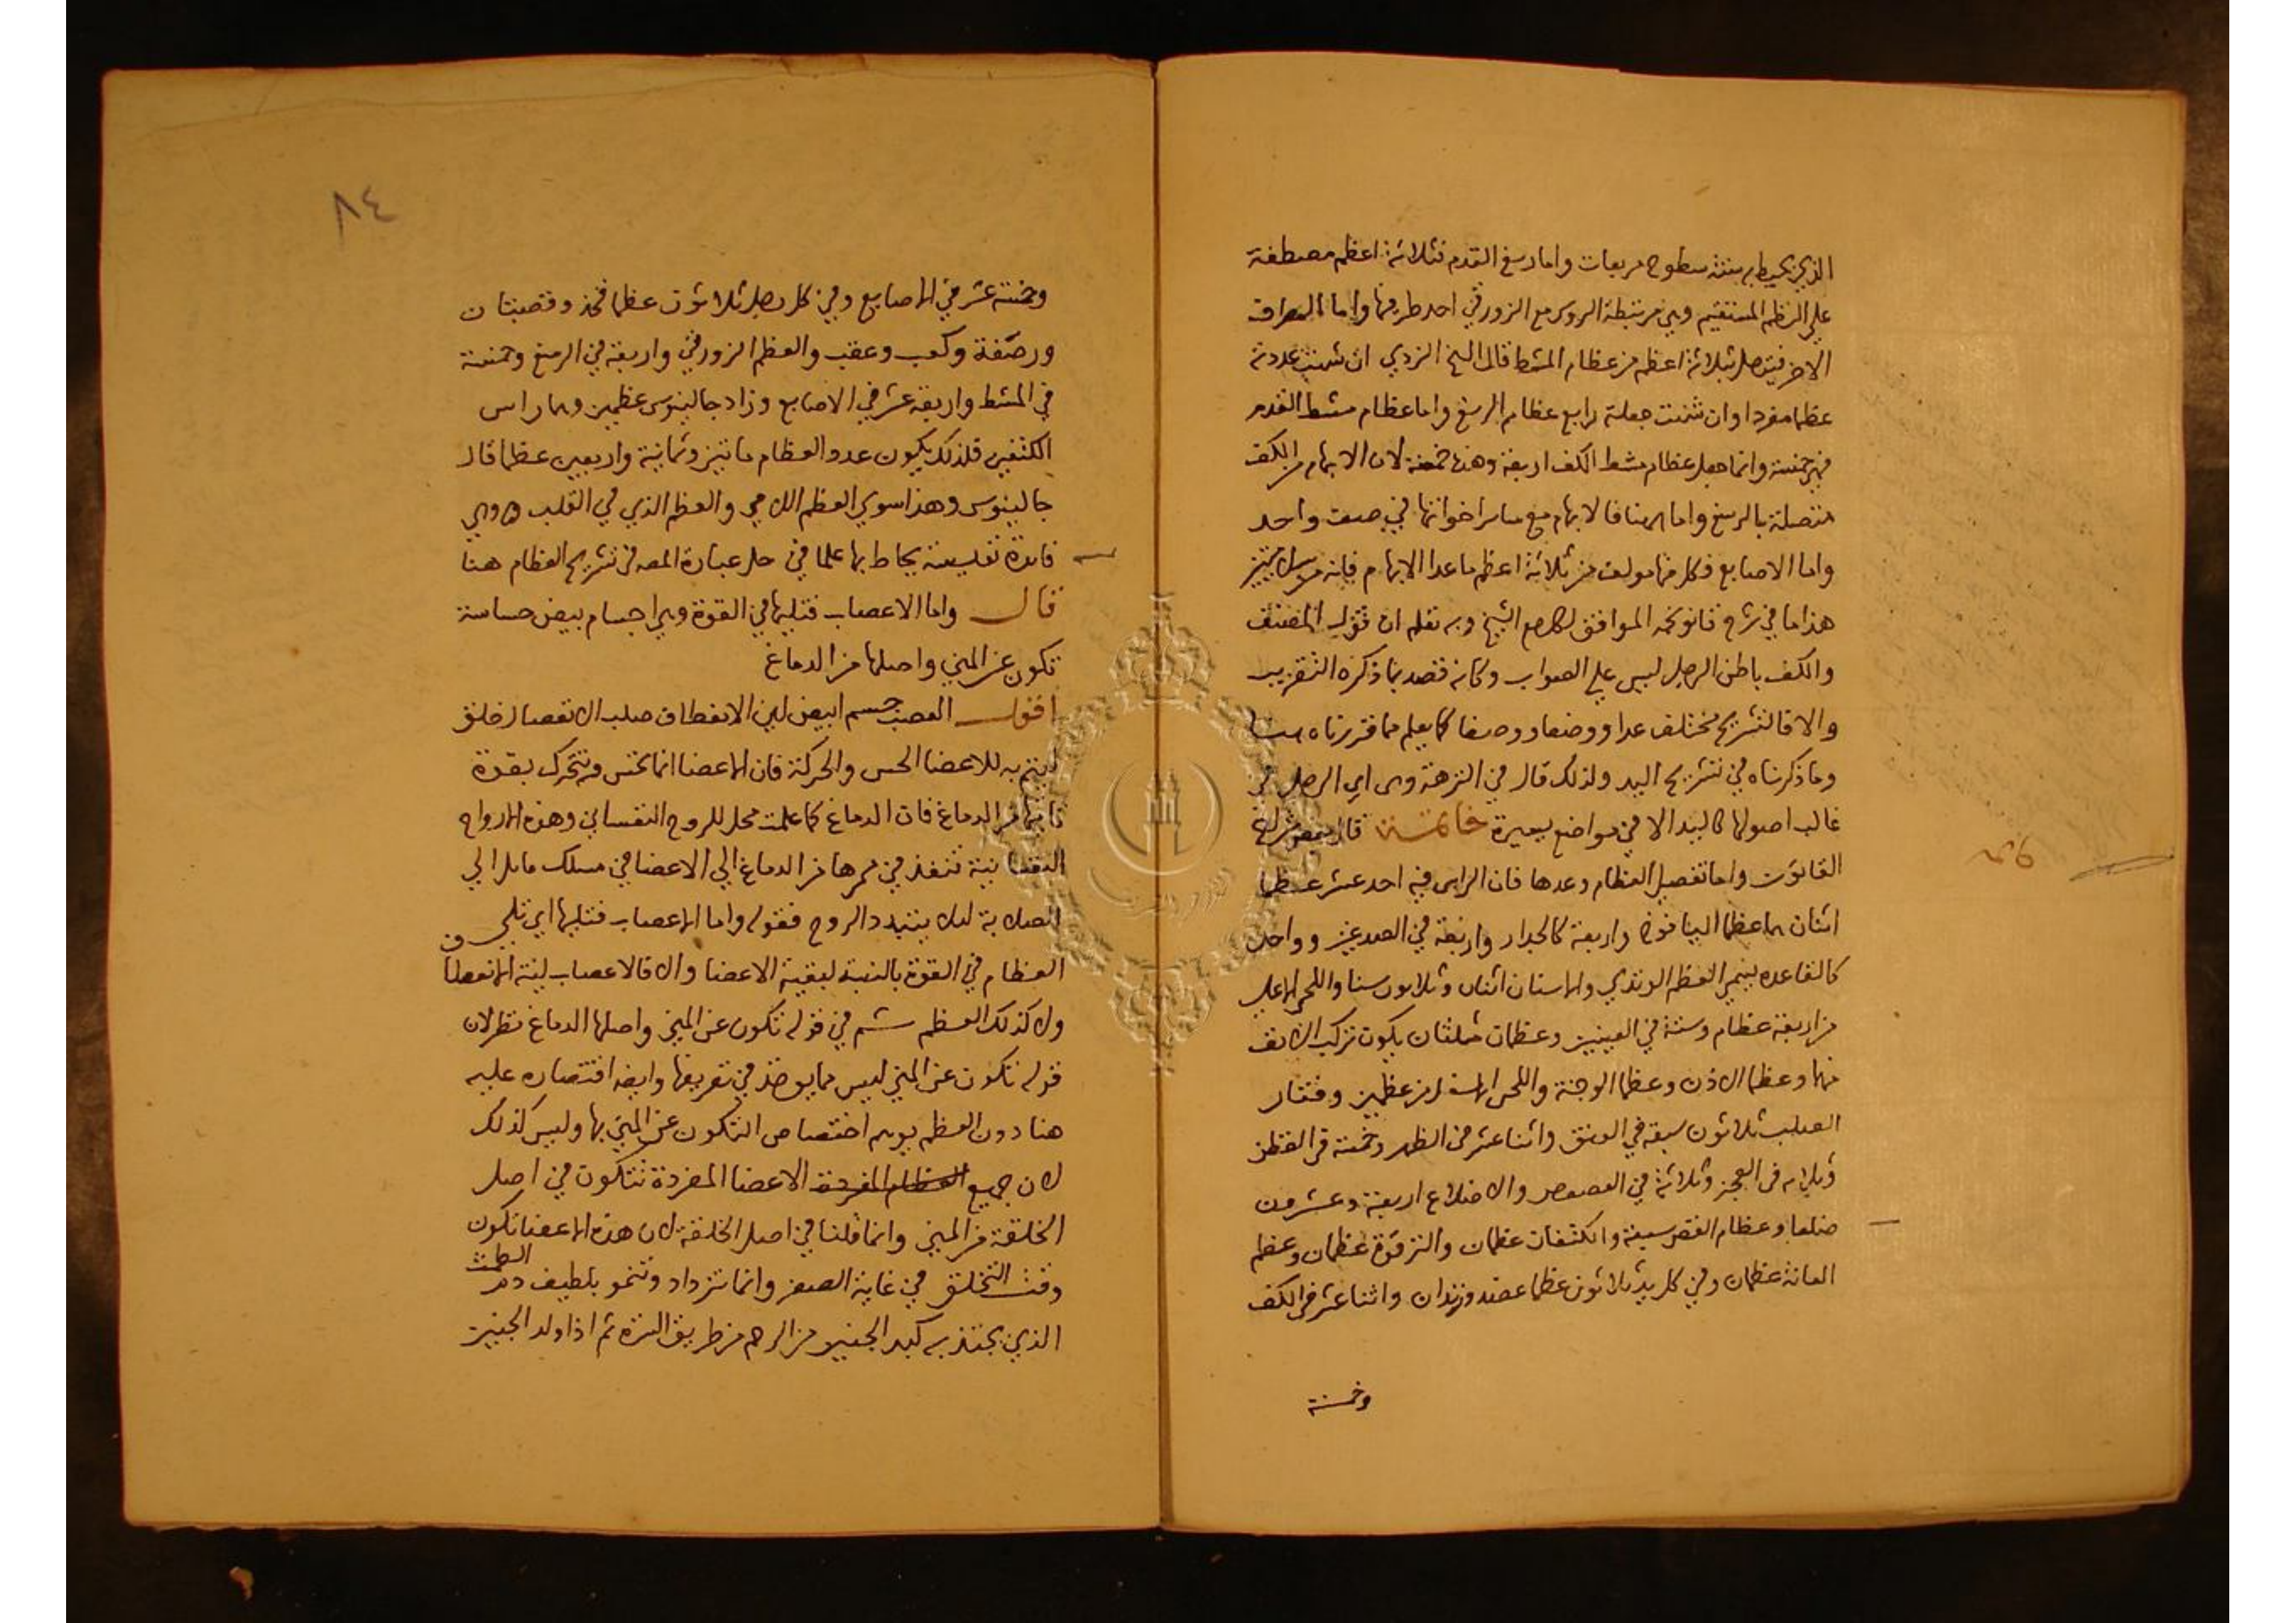 الذي يحيط به ستة سطوح مربعات واما رسغ القدم فثلاثة اعظم مصطفة
علي النظم المستقيم وهي مرتبطة الروس مع الزورقي احد طرفيها واما الطرف
الاخر فيتصل بثلاثة اعظم من عظام المشط قال الشيخ الزردي ان شيت عددته
عظما مفردا وان شيت جعلته رابع عظام الرسغ واما عظام مشط القدم
فهي خمسة وانما جعل عظام مشط الكف اربعة وهنا خمسة لان الابهام في الكف
متصلة بالرسغ واما هنا فالابهام مع ساير اخواتها في صف واحد
واما الاصابع فكل منها مولف من ثلاثة اعظم ما عدا الابهام فانه من
هذا ما في شرح قانونجه الموافق لكلام الشيخ وبه تعلم ان قول المصنف
والكف باطن الرجل ليس علي الصواب وكانه قصد بما ذكره التقريب
والا فالتشريح مختلف عددا ووضعا ووصفا كما يعلم مما قررناه هنا
وما ذكرناه في تشريح اليد ولذلك قال في النزهة وهي اي الرجل في
غالب اصولها كاليد الا في مواضع يسيرة خاتمة قال بعض شراح
القانون واما تفصيل العظام وعدها فان الراس فيه احد عشر عظما
اثنان هما عظما اليافوخ واربعة كالجدار واربعة في الصدغين وواحد
كالقاعده يسمي العظم الوتدي والاسنان اثنان وثلاثون سنا واللحي الاعلي
من اربعة عظام وستة في العينين وعظمان مثلثان يكون تركيب الانف
منهما وعظما الاذن وعظما الوجنة واللحي الاسفل من عظمين وفقار
الصلب ثلاثون سبعة في العنق واثنا عشر في الظهر وخمسة في القطن
وثلاثه في العجز وثلاثة في العصعص والاضلاع اربعة وعشرون
ضلعا وعظام القص سبعة والكتفان عظمان والترقوة عظمان وعظم
العانة عظمان وفي كل يد ثلاثون عظما عضد وزندان واثنا عشر في الكف
وخمسة
٨٤
وخمسة عشر في الاصابع وفي كل رجل ثلاثون عظما فخذ وقصبتان
ورضفة وكعب وعقب والعظم الزورقي واربعة في الرسغ وخمسة
في المشط واربعة عشر في الاصابع وزاد جالينوس عظمين وهما راس
الكتفين فلذلك يكون عدد العظام مايتين وثمانية واربعين عظما قال
جالينوس وهذا سوي العظم اللامي والعظم الذي في القلب ه وهي
فائدة نفيسة يحاط بها علما في حل عبارة المص في تشريح العظام هنا
قال واما الاعصاب فتليها في القوة وهي اجسام بيض حساسة
تكون عن المني واصلها من الدماغ
اقول العصب جسم ابيض لين الانعطاف صلب الانفصال خلق
ليتم به للاعضا الحس والحركة فان الاعضا انما تحس وتتحرك بقوة
تاتيها من الدماغ فان الدماغ كما علمت محل للروح النفساني وهذه الارواح
النفسانية تنفذ في ممرها من الدماغ الي الاعضا في مسلك مايل الي
الصلابة ليلا يتبدد الروح فقوله واما الاعصاب فتليها اي تلي
العظام في القوة بالنسبة لبقية الاعضا والا فالاعصاب لينة الانعطاف
ولا كذلك العظم ثم في قوله تكون عن المني واصلها الدماغ نظر لان
قوله تكون عن المني ليس مما يوخذ في تعريفها وايضا اقتصاره عليه
هنا دون العظم يوهم اختصاص التكون عن المني بها وليس كذلك
لان جميع العظام المفردة الاعضا المفردة تتكون في اصل
الخلقة من المني وانما قلنا في اصل الخلقة لان هذه الاعضا تكون
وقت التخلق في غاية الصغر وانما تزداد وتنمو بلطيف دم الطمث
الذي يجتذبه كبد الجنين من الرحم من طريق السرة ثم اذا ولد الجنين